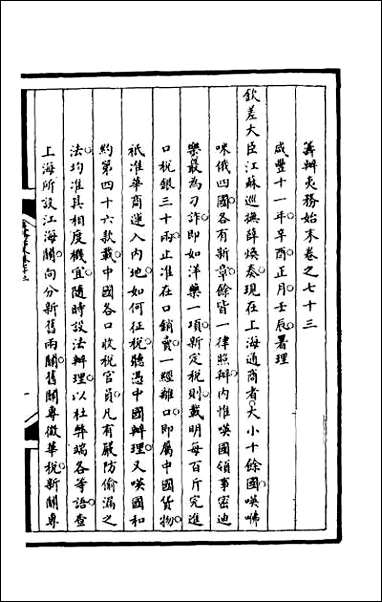 籌辦夷務始末卷之七十三
咸豐十一年辛酉正月壬辰署理
欽差大臣江蘇巡撫薛煥奏現在上海通商者大小十餘國𠸄咈
咪俄四國各有新章餘皆一律照辦內惟𠸄國領事密迪
樂最為刁詐即如洋藥一項新定稅則載明每百斤完進
口稅銀三十兩止准在口銷賣一經離口即屬中國貨物
祇准華商運入內地如何征稅聽憑中國辦理又𠸄國和
約第四十六款載中國各口收稅官員凡有嚴防偷漏之
法均准其相度機宜隨時設法辦理以杜弊端各等語查
上海所設江海關向分新舊兩關舊關專徵華稅新關專